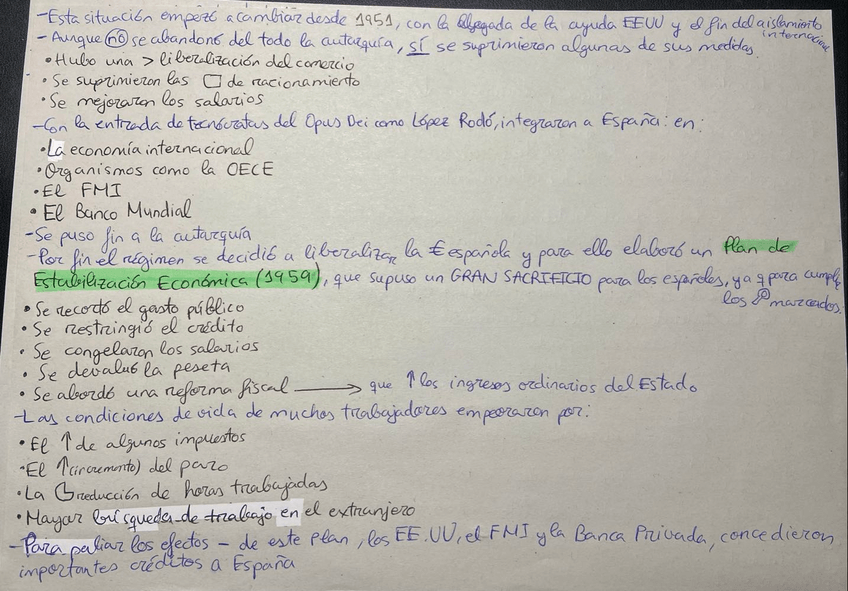 -Esta situación empezó a cambiar desde 1951, con la llegada de la ayuda EEUU y el fin del aislamiento internacional
- Aunque no se abandonó del todo la autarquía, sí se suprimieron algunas de sus medidas
• Hubo una > liberalización del comercio
• Se suprimieron las □ de racionamiento
• Se mejoraron los salarios
-Con la entrada de tecnócratas del Opus Dei como López Rodó, integraron a España: en:
• La economía internacional
• Organismos como la OECE
• El FMI
• El Banco Mundial
-Se puso fin a la autarquía
-Por fin el régimen se decidió a liberalizar la € española y para ello elaboró un Plan de
Estabilización Económica (1959), que supuso un GRAN SACRIFICIO para los españoles, ya q para cumplir
los marcados.
• Se recortó el gasto público
• Se restringió el crédito
• Se congelaron los salarios
• Se devaluó la peseta
• Se abordó una reforma fiscal → que ↑ los ingresos ordinarios del Estado
-Las condiciones de vida de muchos trabajadores empeoraron por:
• El ↑ de algunos impuestos
• El ↑ (incremento) del paro
• La reducción de horas trabajadas
• Mayor búsqueda de trabajo en el extranjero
- Para paliar los efectos - de este plan, los EE.UU, el FMI y la Banca Privada, concedieron
importantes créditos a España